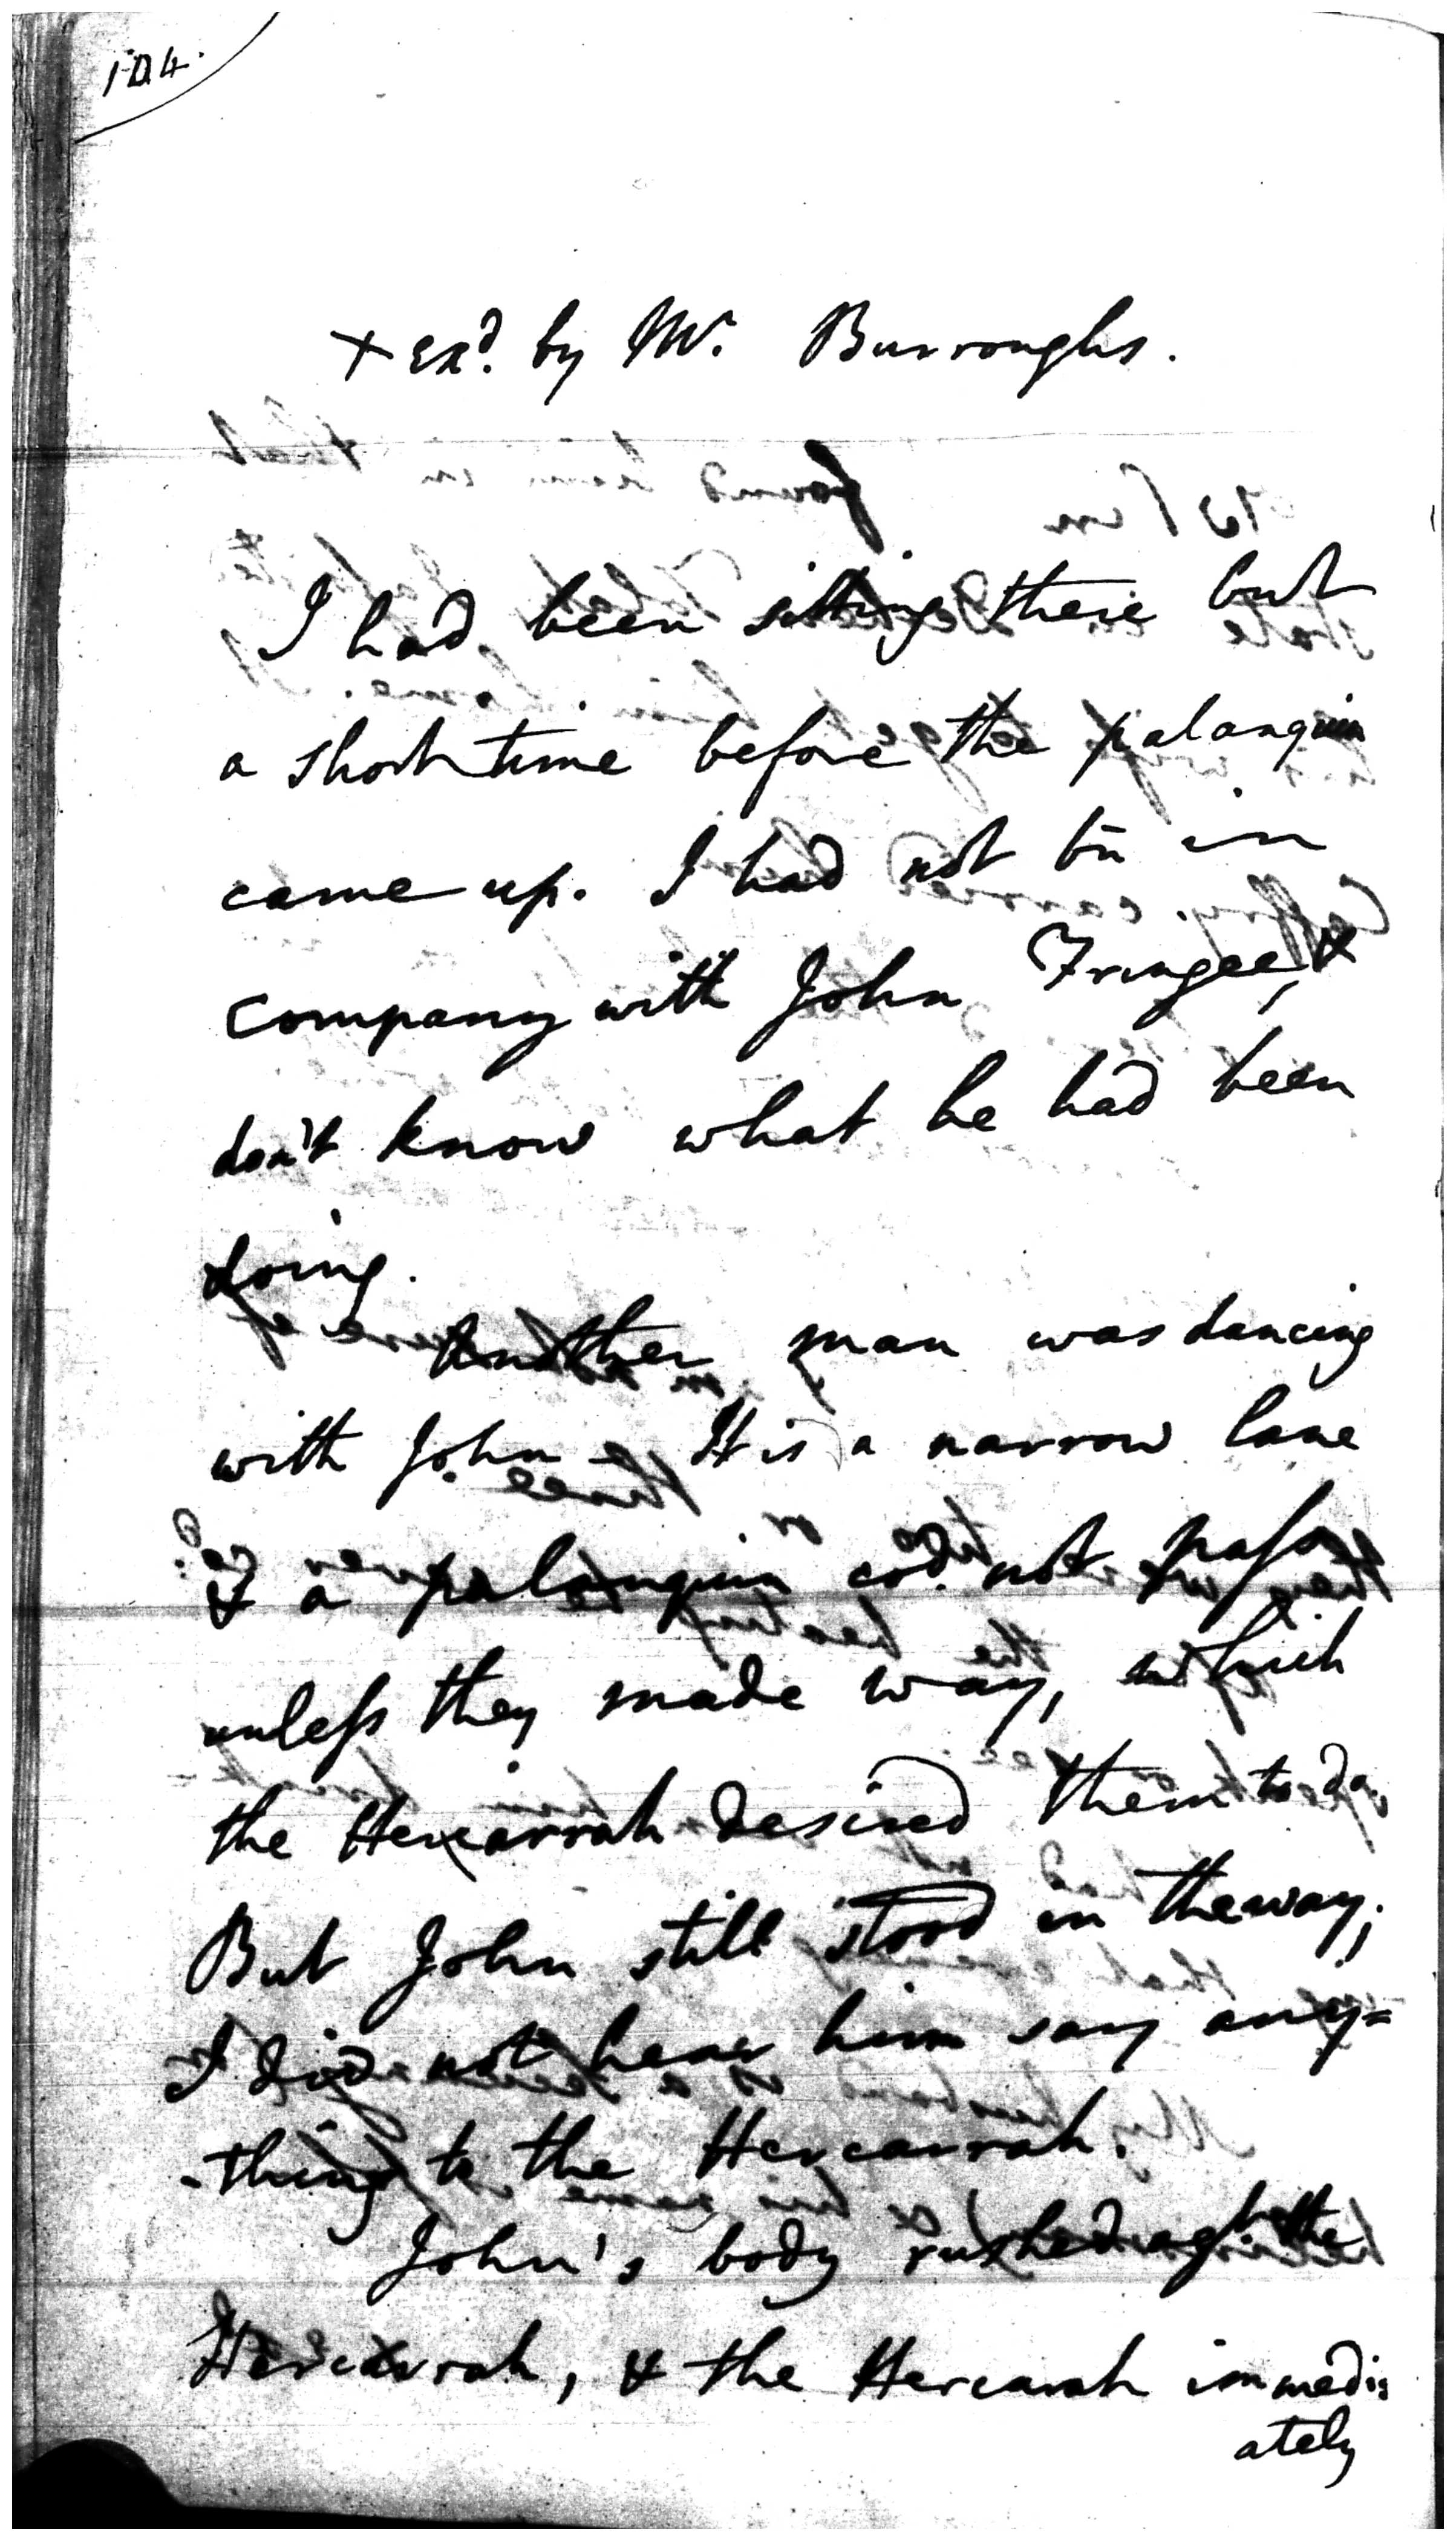 104.
× exd. by Mr. Burroughs.
I had been sitting there but
a short time before the palanquin
came up. I had not bn in
company with John Fringee, &
don't know what he had been
doing.
Another man was dancing
with John - It is a narrow lane
& a palanquin cod. not pass
unless they made way, which
the Hercarrah desired them to do,
But John still stood in the way;
I did not hear him say any=
-thing to the Hercarrah.
John's body rushed agt. the
Hercarrah, & the Hercarah immedi=
ately